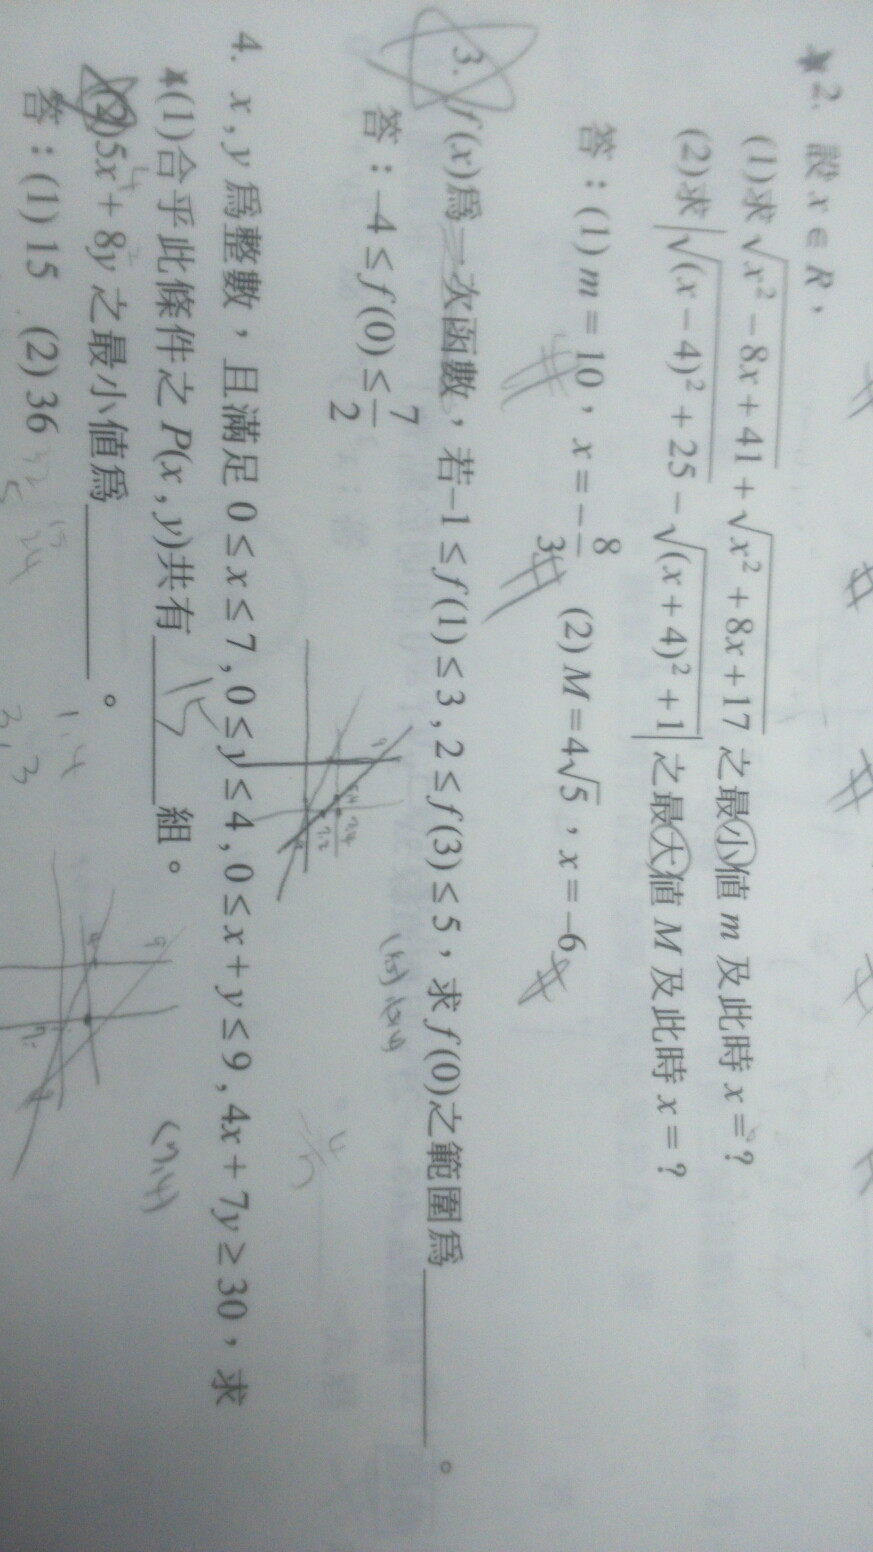 2. 設 x ∈ R，
(1)求 √(x² − 8x + 41) + √(x² + 8x + 17) 之最小值 m 及此時 x = ?
(2)求 |√((x − 4)² + 25) − √((x + 4)² + 1)| 之最大值 M 及此時 x = ?
答：(1) m = 10，x = −8/3 (2) M = 4√5，x = −6
3. f(x)為一次函數，若−1 ≤ f(1) ≤ 3 , 2 ≤ f(3) ≤ 5，求 f(0)之範圍為______。
答：−4 ≤ f(0) ≤ 7/2
4. x , y 為整數，且滿足 0 ≤ x ≤ 7 , 0 ≤ y ≤ 4 , 0 ≤ x + y ≤ 9 , 4x + 7y ≥ 30，求
(1)合乎此條件之 P(x , y)共有 15 組。
(7,4)
(2)5x + 8y 之最小值為______。
1,4
3,3
答：(1) 15 (2) 36